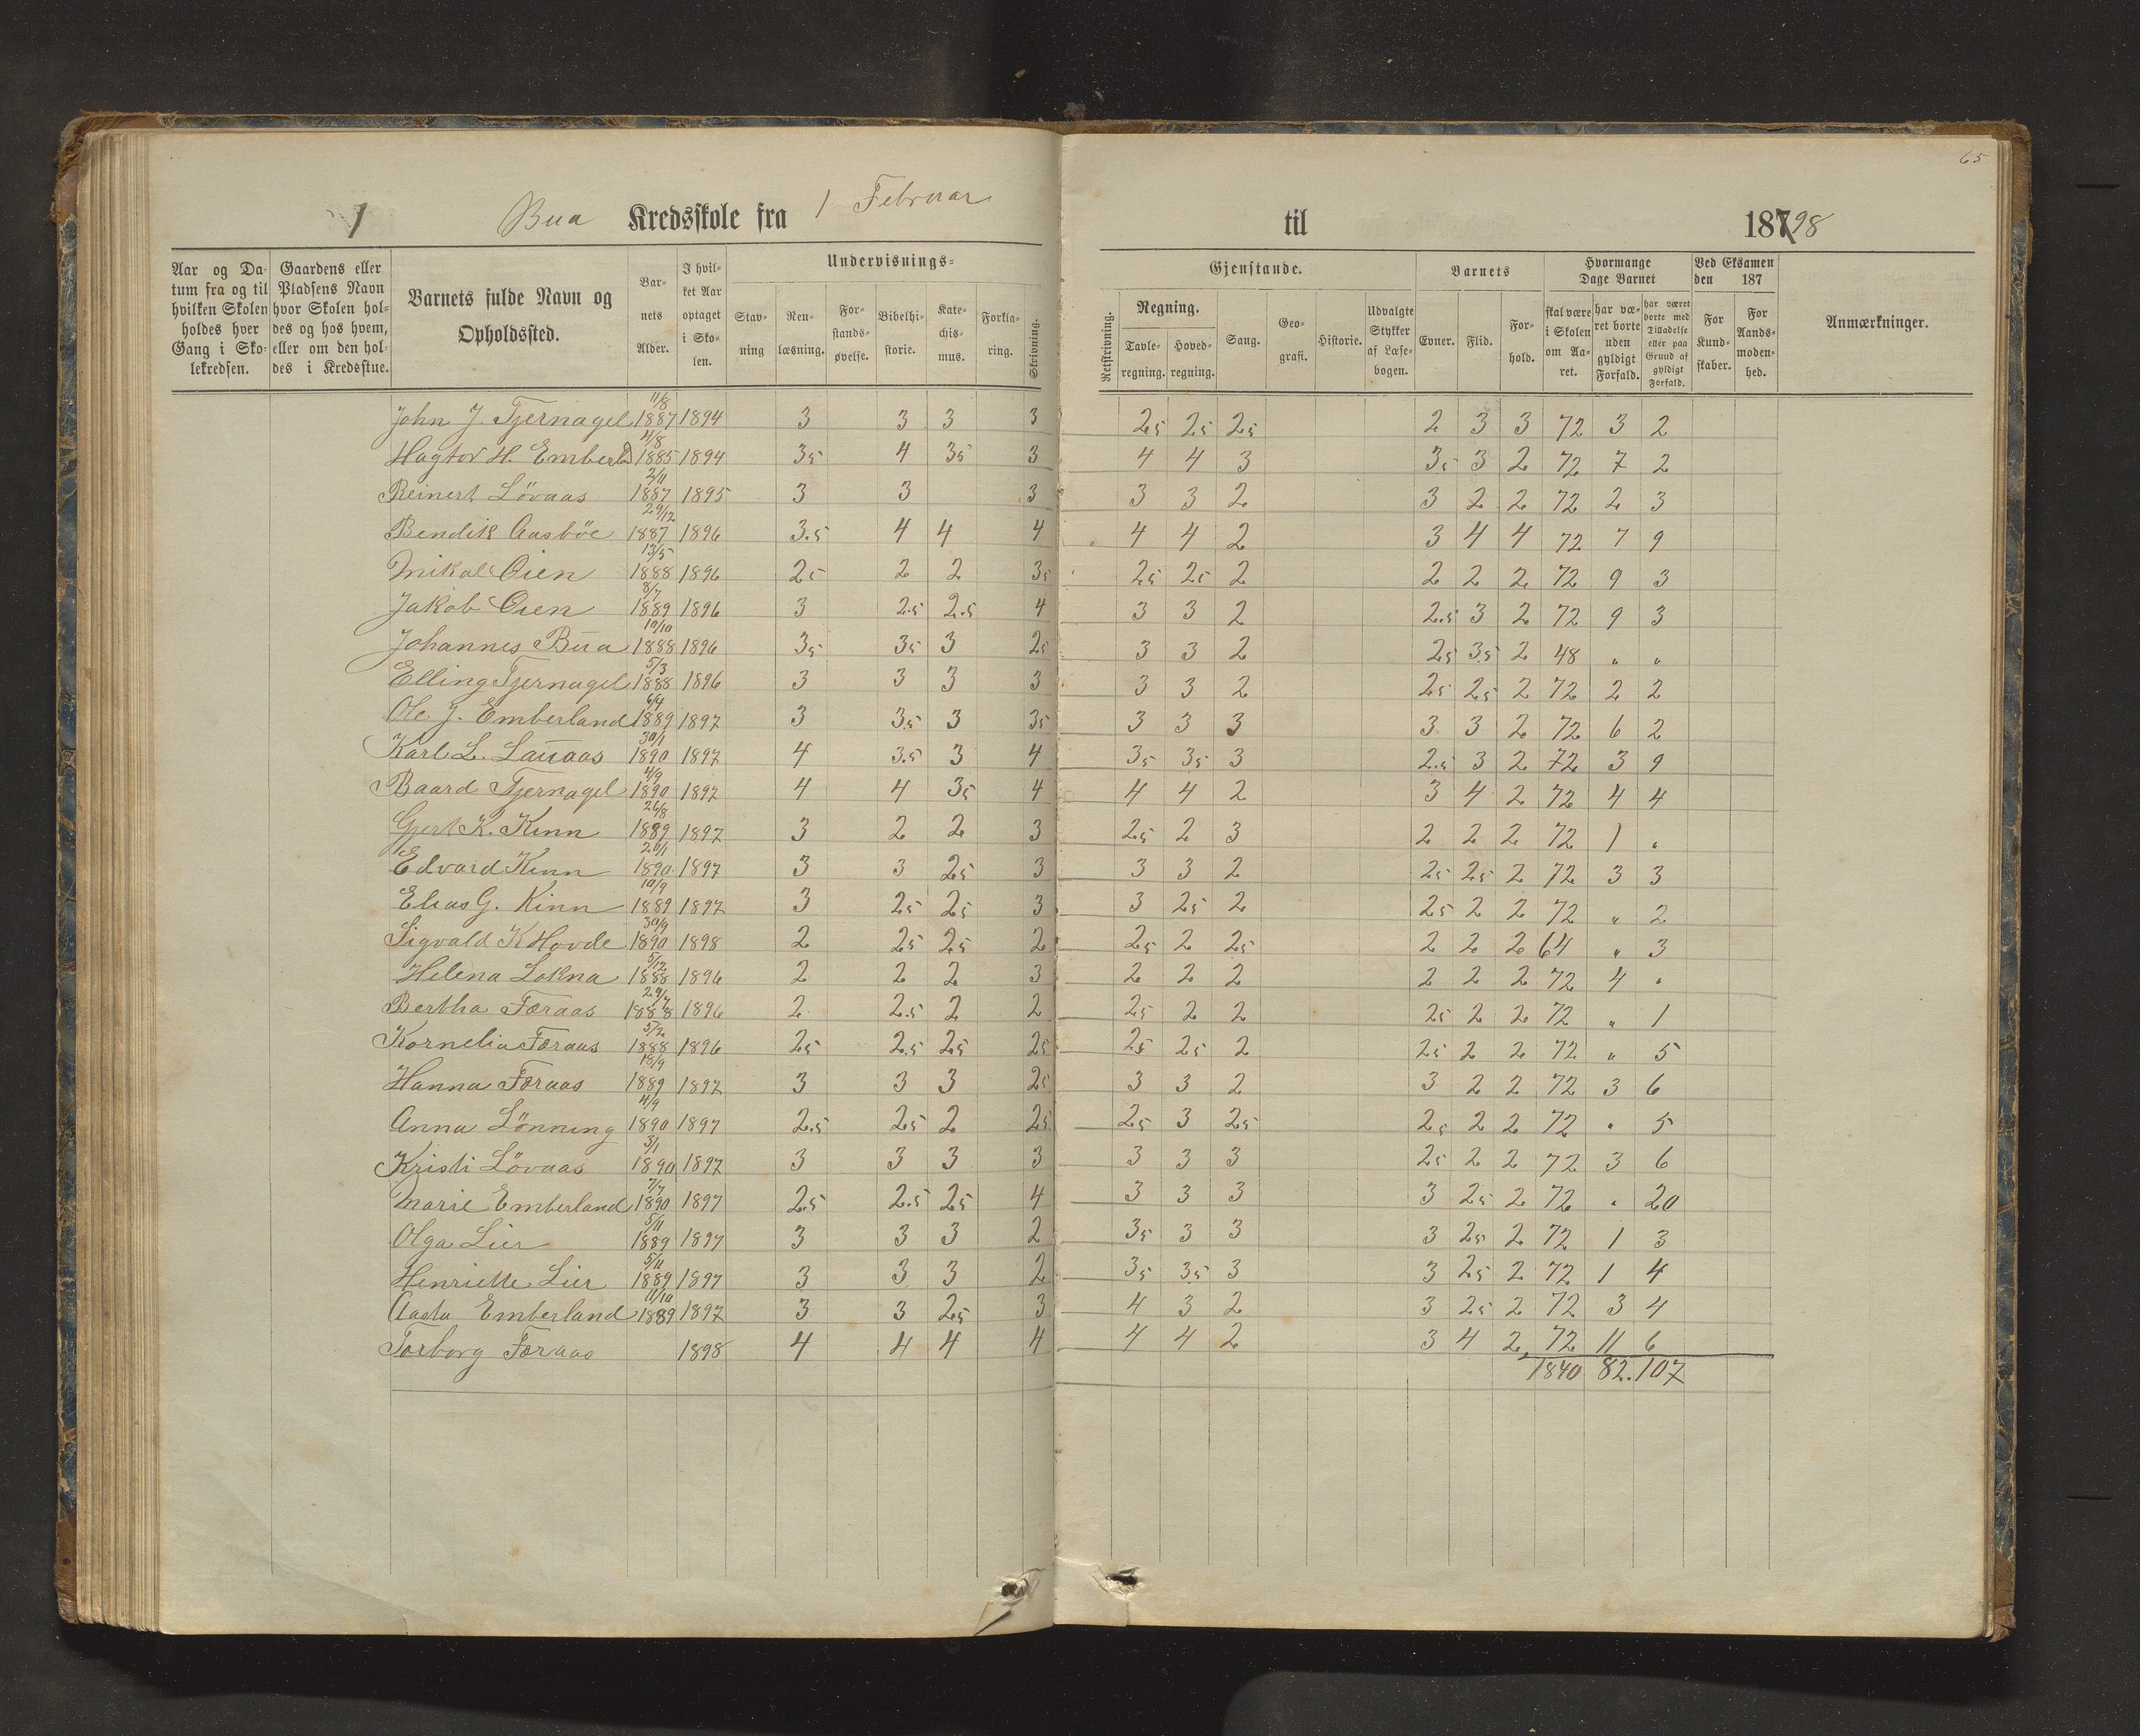 65
1 Bua Kredsskole fra 1 Februar til 187 98
Aar og Datum fra og til hvilken Skolen holdes hver Gang i Skolekredsen.
Gaardens eller Pladsens Navn hvor Skolen holdes og hos hvem, eller om den holdes i Kredsstue.
Barnets fulde Navn og Opholdssted.
Barnets Alder.
I hvilket Aar optaget i Skolen.
Undervisnings= Gjenstande.
Stavning
Renlæsning.
Forstandsøvelse.
Bibelhistorie.
Katechismus.
Forklaring.
Skrivning.
Retskrivning.
Regning.
Tavleregning.
Hovedregning.
Sang.
Geografi.
Historie.
Udvalgte Stykker af Læsebogen.
Barnets
Evner.
Flid.
Forhold.
Hvormange Dage Barnet
skal være i Skolen om Aaret.
har været borte uden gyldigt Forfald.
har været borte med Tilladelse eller paa Grund af gyldigt Forfald.
Ved Eksamen den 187
For Kundskaber.
For Aandsmodenhed.
Anmærkninger.
John J. Tjernagel 11/8 1887 1894 3 3 3 3 25 25 25 2 3 3 72 3 2
Hagtor H. Emberld 4/8 1885 1894 35 4 35 3 4 4 3 35 3 2 72 7 2
Reinert Lövaas 2/11 1887 1895 3 3 3 3 3 2 3 2 2 72 2 3
Bendik Aasböe 29/12 1887 1896 3.5 4 4 4 4 4 2 3 4 4 72 7 9
Mikal Oien 13/5 1888 1896 25 2 2 35 25 25 2 2 2 2 72 9 3
Jakob Oien 8/7 1889 1896 3 2.5 2.5 4 3 3 2 2.5 3 2 72 9 3
Johannes Bua 10/10 1888 1896 35 35 3 25 3 3 2 25 35 2 48 " "
Elling Tjernagel 5/3 1888 1896 3 3 3 3 3 3 2 25 25 2 72 2 2
Ole J. Emberland 6/4 1889 1897 3 3.5 3 35 3 3 3 3 3 2 72 6 2
Karl L. Lauaas 30/1 1890 1897 4 3.5 3 4 35 35 3 2.5 3 2 72 3 9
Baard Tjernagel 4/9 1890 1897 4 4 35 4 4 4 2 3 4 2 72 4 4
Gjert K. Kinn 26/8 1889 1897 3 2 2 3 25 2 3 2 2 2 72 1 "
Edvard Kinn 20/1 1890 1897 3 3 25 3 3 3 2 25 25 2 72 3 3
Elias G. Kinn 10/9 1889 1897 3 25 25 3 3 25 2 25 2 2 72 " 2
Sigvald K Hovde 30/9 1890 1898 2 25 25 2 25 2 25 2 2 2 64 " 3
Helena Lokna 5/12 1888 1896 2 2 2 3 2 2 2 2 2 2 72 4 "
Bertha Færaas 29/7 1888 1896 2 2.5 2 2 25 2 2 25 2 2 72 " 1
Kornelia Færaas 5/2 1888 1896 25 25 25 25 25 25 2 25 2 2 72 " 5
Hanna Færaas 18/9 1889 1897 3 3 3 25 3 3 2 3 2 2 72 3 6
Anna Lönning 4/9 1890 1897 2.5 25 2 25 25 3 25 25 2 2 72 " 5
Kristi Lövaas 3/1 1890 1897 3 3 3 3 3 3 3 25 2 2 72 3 6
Marie Emberland 7/7 1890 1897 2.5 2.5 25 4 3 3 3 3 25 2 72 " 20
Olga Lier 5/11 1889 1897 3 3 3 2 35 3 3 3 25 2 72 1 3
Henriette Lier 5/11 1889 1897 3 3 3 2 35 3.5 3 3 25 2 72 1 4
Aasta Emberland 11/10 1889 1897 3 3 25 3 4 3 2 3 25 2 72 3 4
Torborg Færaas 1898 4 4 4 4 4 4 2 3 4 2 72 11 6
1840 82. 107